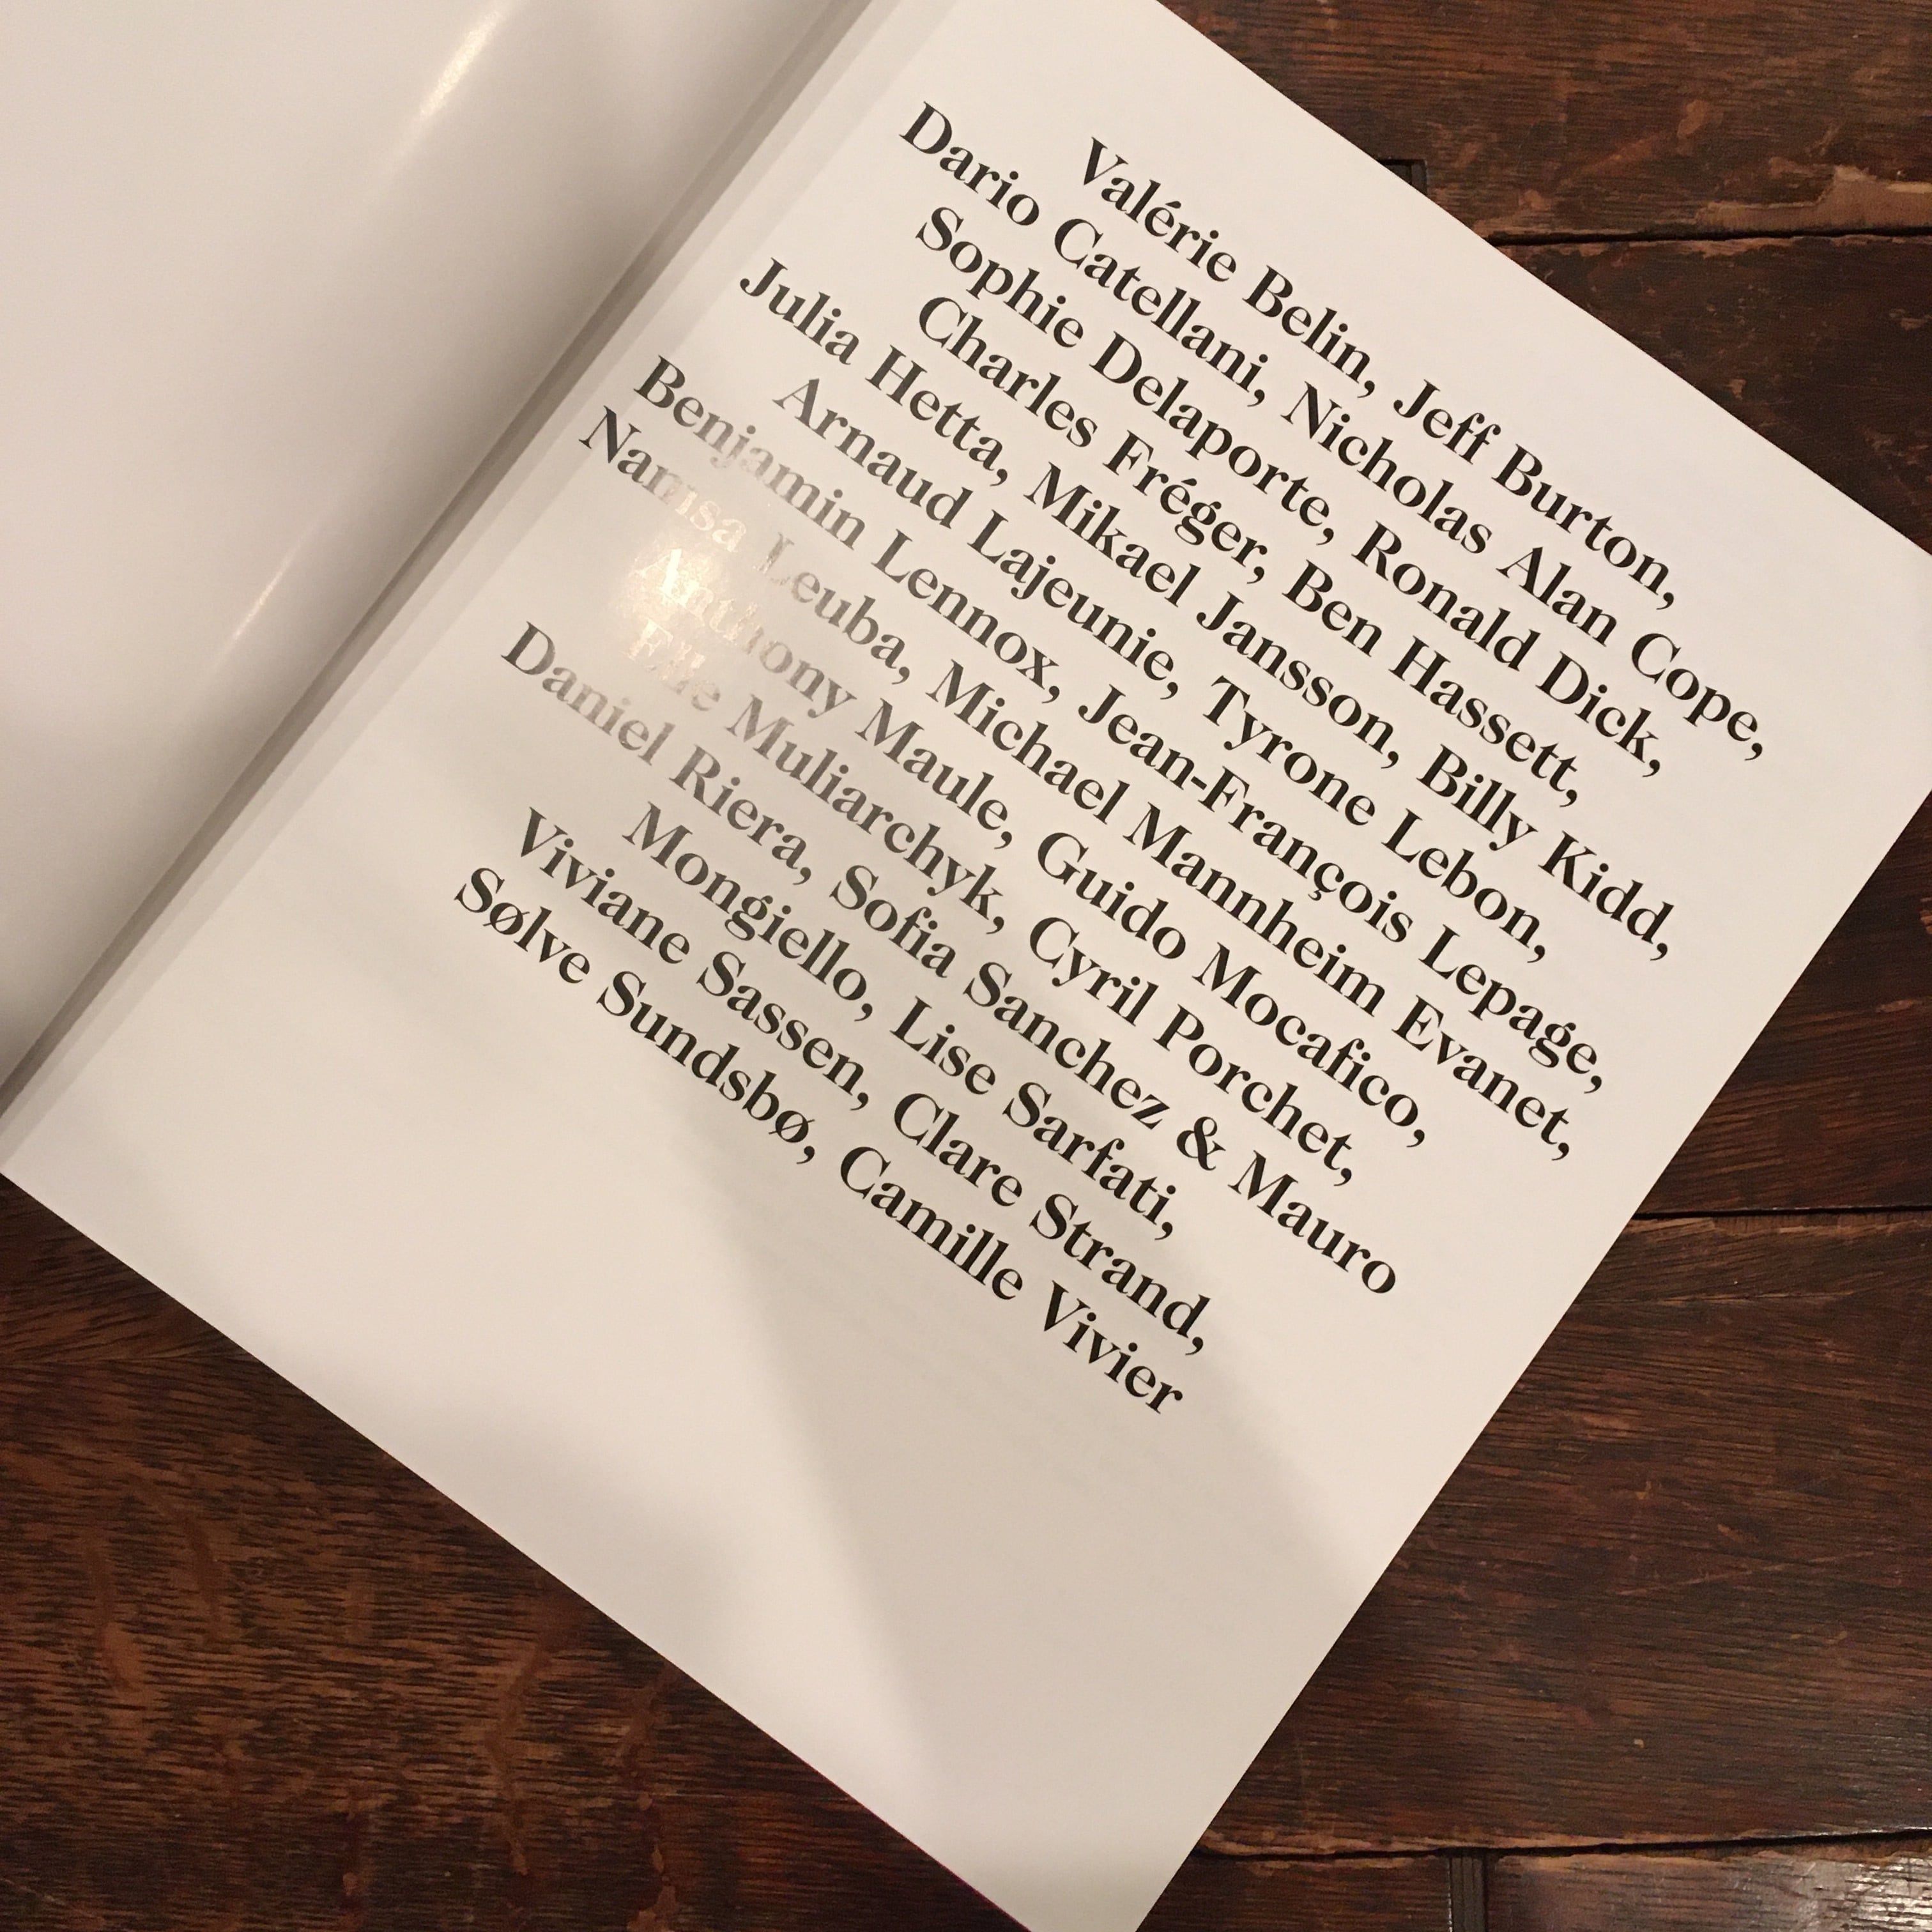 Valérie Belin, Jeff Burton,
Dario Catellani, Nicholas Alan Cope,
Sophie Delaporte, Ronald Dick,
Charles Fréger, Ben Hassett,
Julia Hetta, Mikael Jansson, Billy Kidd,
Arnaud Lajeunie, Tyrone Lebon,
Benjamin Lennox, Jean-François Lepage,
Namsa Leuba, Michael Mannheim Evanet,
Anthony Maule, Guido Mocafico,
Muliarchyk, Cyril Porchet,
Daniel Riera, Sofia Sanchez & Mauro
Mongiello, Lise Sarfati,
Viviane Sassen, Clare Strand,
Sølve Sundsbø, Camille Vivier